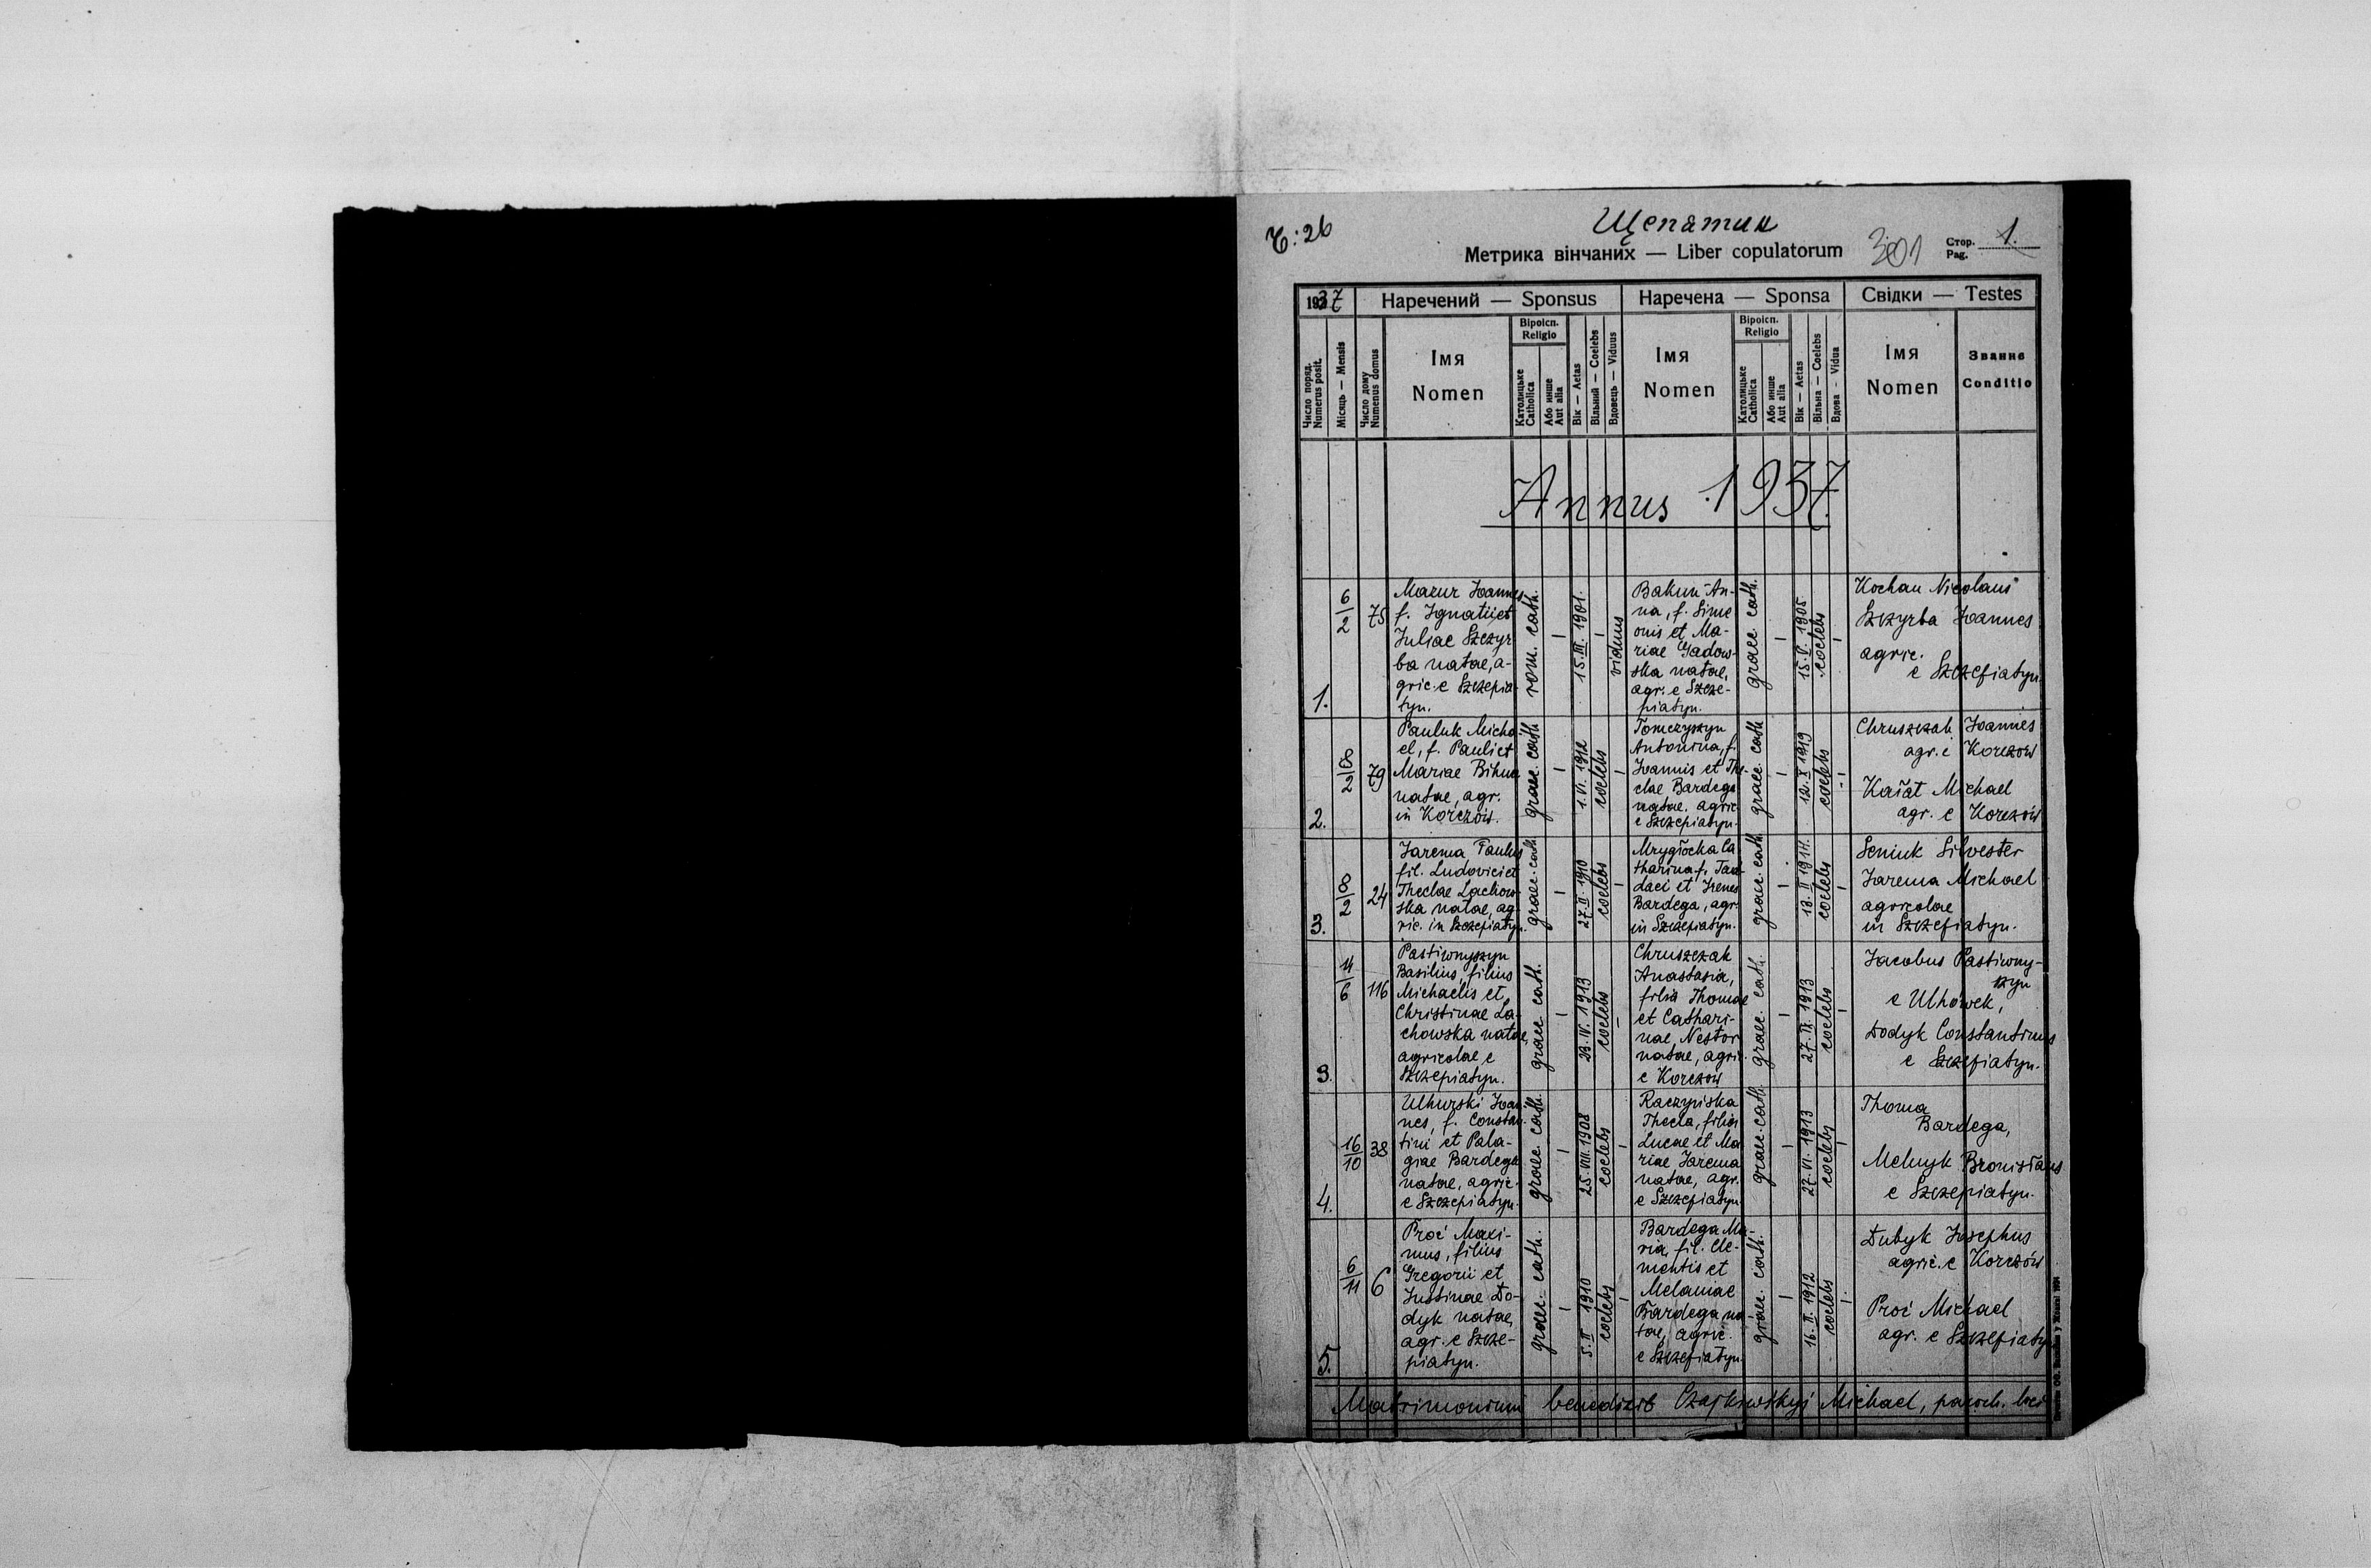 Ч: 26
Щепятин
Метрика вінчаних — Liber copulatorum
301
Стор.
Pag.
1.
1937
Наречений — Sponsus
Наречена — Sponsa
Свідки — Testes
Число поряд.
Numerus posit.
Місяць — Mensis
Число дому
Numenus domus
Імя
Nomen
Віроісп.
Religio
Католицьке
Catholica
Або инше
Aut alia
Вік — Aetas
Вільний — Coelebs
Вдовець — Viduus
Імя
Nomen
Віроісп.
Religio
Католицьке
Catholica
Або инше
Aut alia
Вік — Aetas
Вільна — Coelebs
Вдова - Vidua
Імя
Nomen
Званнє
Conditio
Annus 1937.
1.
6/2
75
Mazur Joannes
f. Ignatii et
Juliae Szczyr
ba natae, a-
gric. e Szczepia-
tyn.
rom. cath.
15. III. 1901.
viduus
Bakun An-
na, f. Sime
onis et Ma-
riae Gadow-
ska natae,
agr. e Szcze-
piatyn.
graec. cath.
15. V. 1905
coelebs
Kochan Nicolaus
Szczyrba Joannes
agric.
e Szczepiatyn.
2.
2/8
79
Pauluk Micha
el, f. Pauli et
Mariae Bihun
natae, agr.
in Korczów.
graec. cath
1. VI. 1912
coelebs
Tomczyszyn
Antonina, f.
Joannis et The-
clae Bardega
natae, agric
e Szczepiatyn.
graec. cath
12. X 1919
coelebs
Chruszczak Joannes
agr. e Korczów
Michael
agr. e Korczów
3.
2/8
24
Jarema Paulus
fil. Ludovici et
Theclae Lachow-
ska natae, ag-
ric. in Szczepiatyn.
graec. cath
27. II. 1910
coelebs
Mrygłocka Ca
tharina f. Tad-
daei et Irenes
Bardega, agr.
in Szczepiatyn.
graec. cath
18. II 1914.
coelebs
Seniuk Silvester
Jarema Michael
agricolae
in Szczepiatyn.
3.
11/6
116
Pastiwnyszyn
Basilius, filius
Michaelis et
Christinae La-
chowska natae,
agricolae e
Szczepiatyn.
graec. cath.
23. IV. 1913
coelebs
Chruszczak
Anastasia,
filia Thomae
et Cathari-
nae Nestor
natae, agric.
e Korczow
graec. cath.
27. IX. 1913
coelebs
Jacobus Pastiwny-
szyn
e Ulhówek,
Dodyk Constantinus
e Szczepiatyn.
4.
16/10
38
Ulhurski Joan-
nes, f. Constan-
tini et Pala-
giae Bardega
natae, agric.
e Szczepiatyn.
graec. cath.
25. VIII. 1908
coelebs
Raczyńska
Thecla, filia
Lucae et Ma
riae Jarema
natae, agr.
e Szczepiatyn
graec. cath.
27. VI. 1913
coelebs
Thoma
Bardega,
Melnyk Bronisłaus
e Szczepiatyn.
5.
6/11
6
Proć Maxi-
mus, filius
Gregorii et
Justinae Do-
dyk natae,
agr. e Szcze-
piatyn.
graec. cath.
5. II 1910
coelebs
Bardega Ma-
ria, fil. Cle-
mentis et
Melaniae
Bardega na-
tae, agric.
e Szczepiatyn.
graec. cath.
16. II. 1912
coelebs
Dubyk Josephus
agric. e Korczów
Proć Michael
agr. e Szczepiatyn
Matrimonium benedixit Czajkowskyj Michael, paroch. loci